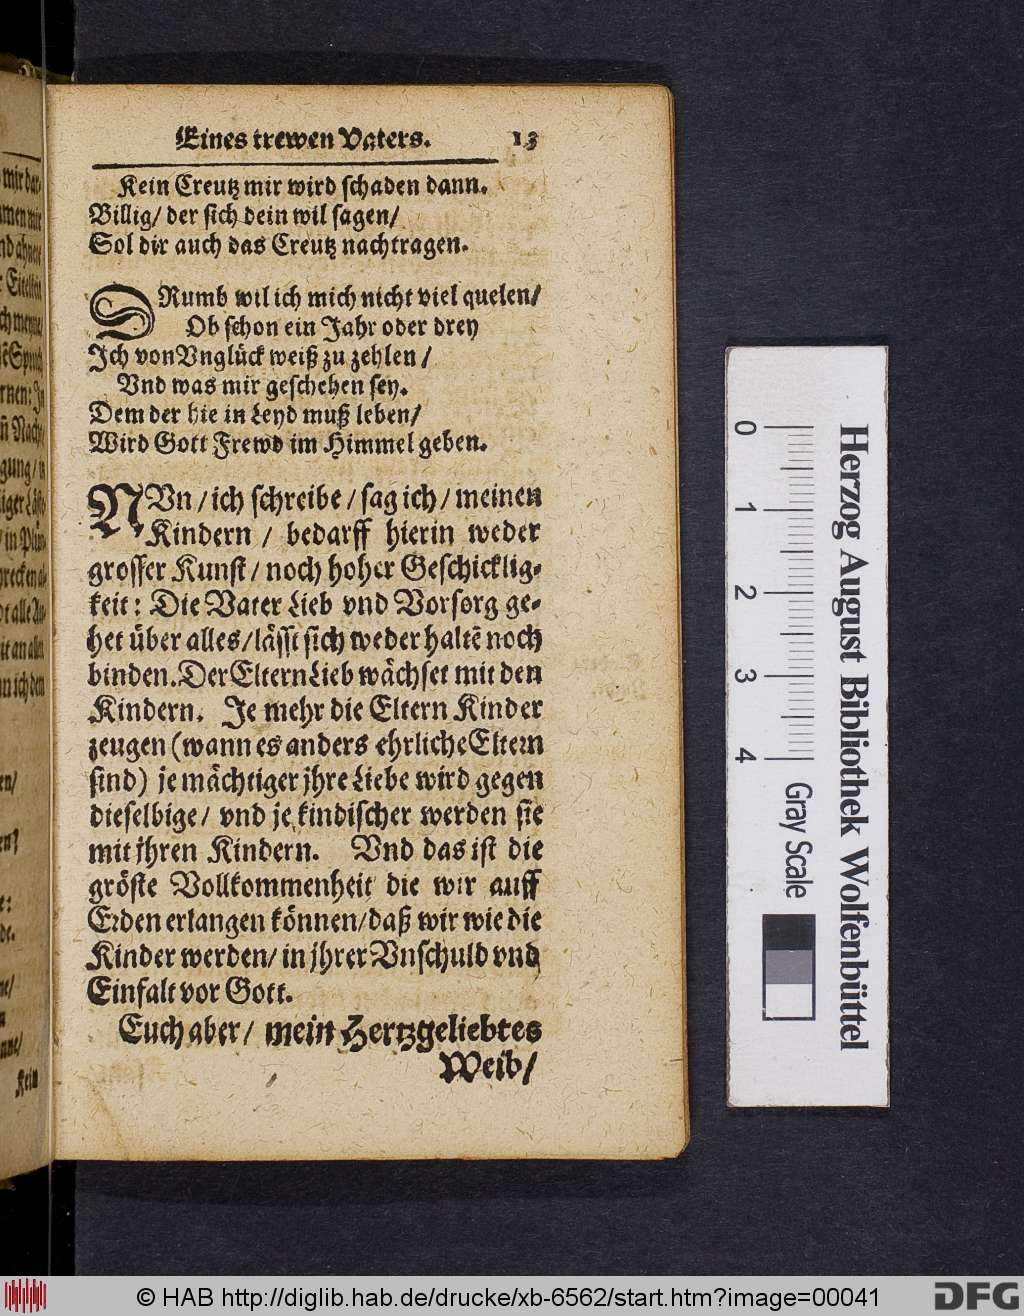 Eines trewen Vaters. 13
Kein Creutz mir wird schaden dann.
Billig/ der sich dein wil sagen/
Sol dir auch das Creutz nachtragen.
DRumb wil ich mich nicht viel quelen/
Ob schon ein Jahr oder drey
Ich von Vnglück weiß zu zehlen/
Vnd was mir geschehen sey.
Dem der hie in Leyd muß leben/
Wird Gott Frewd im Himmel geben.
NVn/ich schreibe/sag ich/meinen
Kindern/ bedarff hierin weder
grosser Kunst/noch hoher Geschicklig-
keit: Die Vater Lieb vnd Vorsorg ge-
het über alles/lässt sich weder haltẽ noch
binden. Der Eltern Lieb wächset mit den
Kindern. Je mehr die Eltern Kinder
zeugen (wann es anders ehrliche Eltern
sind) je mächtiger jhre Liebe wird gegen
dieselbige/ vnd je kindischer werden sie
mit jhren Kindern. Vnd das ist die
gröste Vollkommenheit die wir auff
Erden erlangen können/daß wir wie die
Kinder werden/in jhrer Vnschuld vnd
Einfalt vor Gott.
Euch aber/ mein Hertzgeliebtes
Weib/
0 1 2 3 4
Herzog August Bibliothek Wolfenbüttel
Gray Scale
© HAB http://diglib.hab.de/drucke/xb-6562/start.htm?image=00041
DFG